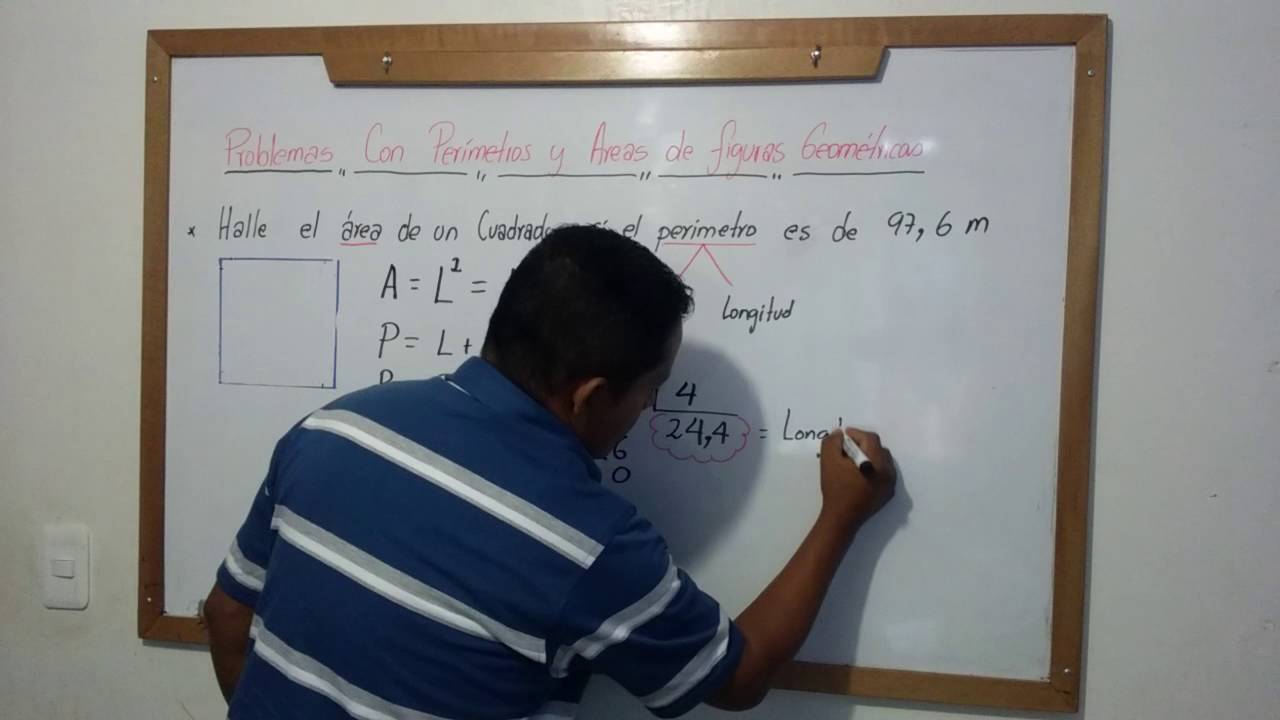 Problemas Con Perímetros y Areas de figuras Geométricas
* Halle el área de un Cuadrado si el perimetro es de 97,6 m
A = L² =
Longitud
P = L +
P
4
24,4 = Long
6
0